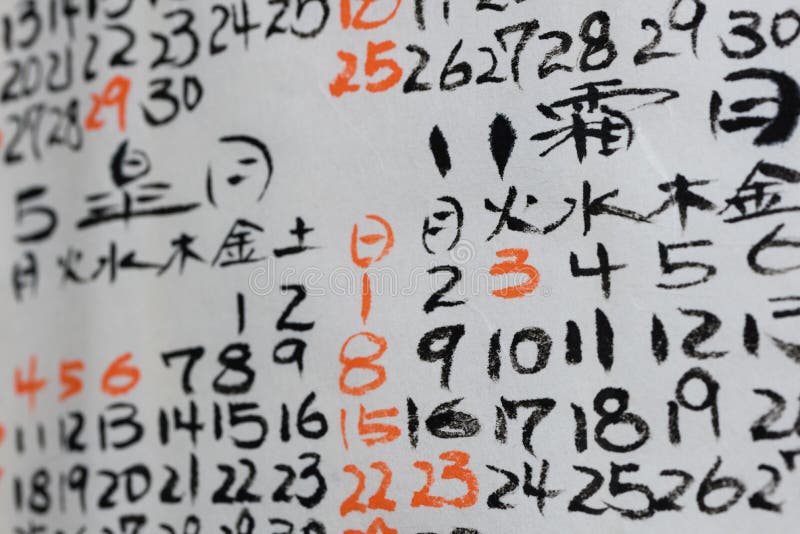 13 14
20 21 22 23 24 25
27 28 29 30
5 皐月
月 火 水 木 金 土
1 2
4 5 6 7 8 9
11 12 13 14 15 16
18 19 20 21 22 23
25 26 27 28 29 30
25 26 27 28 29 30
11 霜月
日 月 火 水 木 金
1 2 3 4 5 6
8 9 10 11 12 13
15 16 17 18 19
22 23 24 25 26 27
29